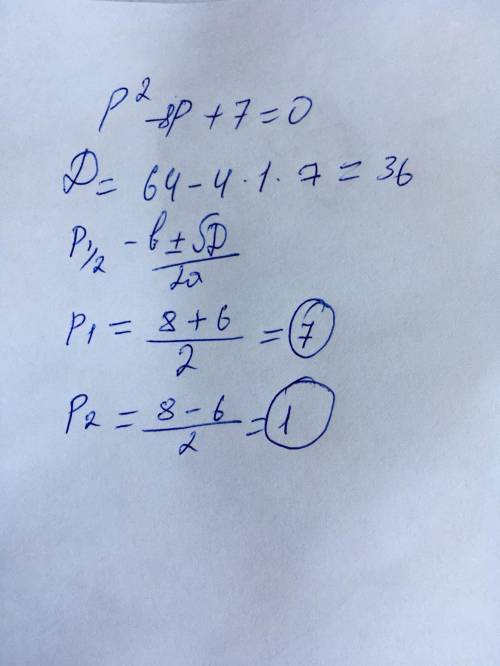 p² -8p + 7 = 0
D = 64 - 4 · 1 · 7 = 36
p1/2 - b ± √D / 2a
p1 = 8 + 6 / 2 = 7
p2 = 8 - 6 / 2 = 1